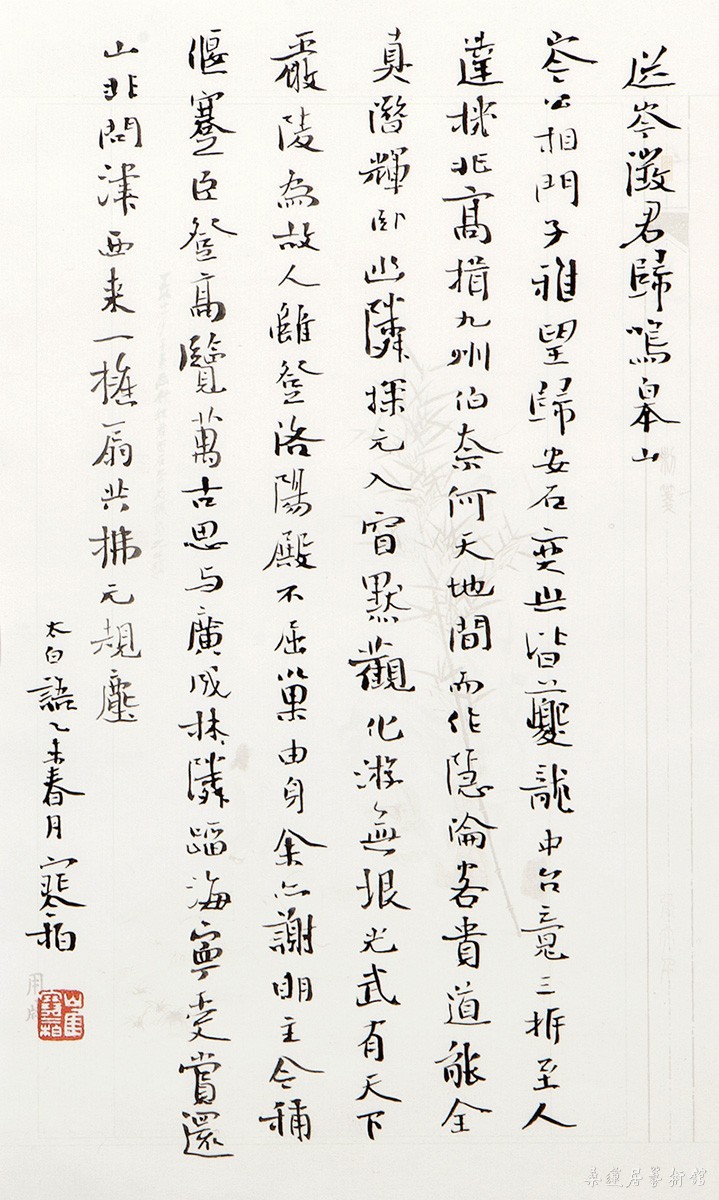 送岑徵君歸鳴皋山
岑公相門子雅望歸安石奕世皆夔龍中台竟三拆至人
達機兆高揖九州伯奈何天地間而作隱淪客貴道能全
真潛輝卧幽隣探元入窅默觀化游無垠光武有天下
嚴陵為故人雖登洛陽殿不屈巢由身余亦謝明主今稱
偃蹇臣登高覽萬古思与廣成林隣蹈海寧受賞還
山非問津西来一摇扇共拂元規塵
太白語乙未春月寒柏
桑蓮居藝術館